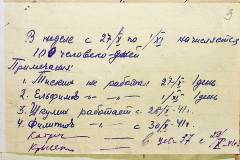 3
В неделе с 27/X по 1/XI начисляется
100 человеко-дней
Примечания:
1. не работал 27/X 1 день
2. Елфимов " — " — 1/XI 1 день
3. Шкулин работает с 28/X-41г.
4. Филиппов — " — с 30/X-41г.